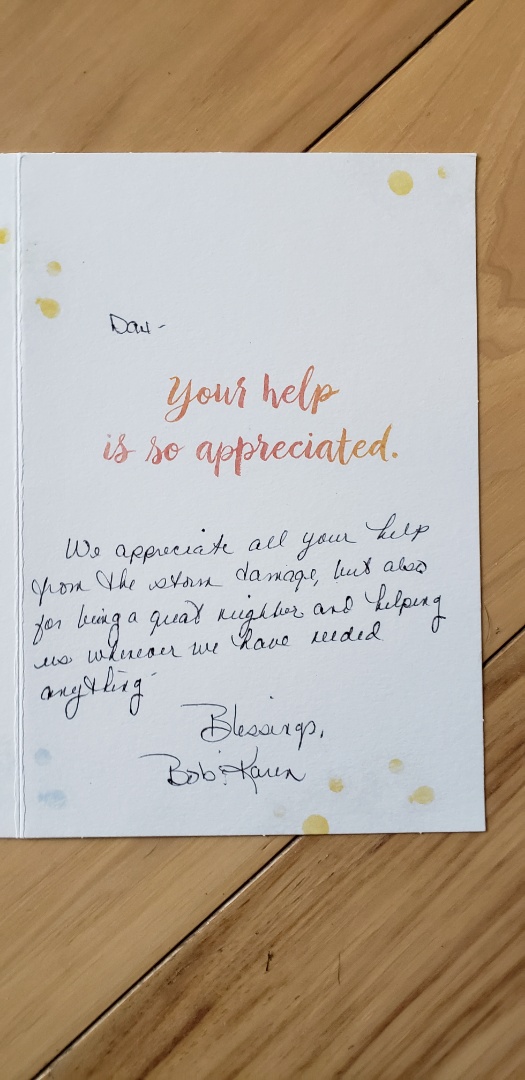 Dan -
Your help
is so appreciated.
We appreciate all your help
from the storm damage, but also
for being a great neighbor and helping
us whenever we have needed
anything
Blessings,
Bob & Karen